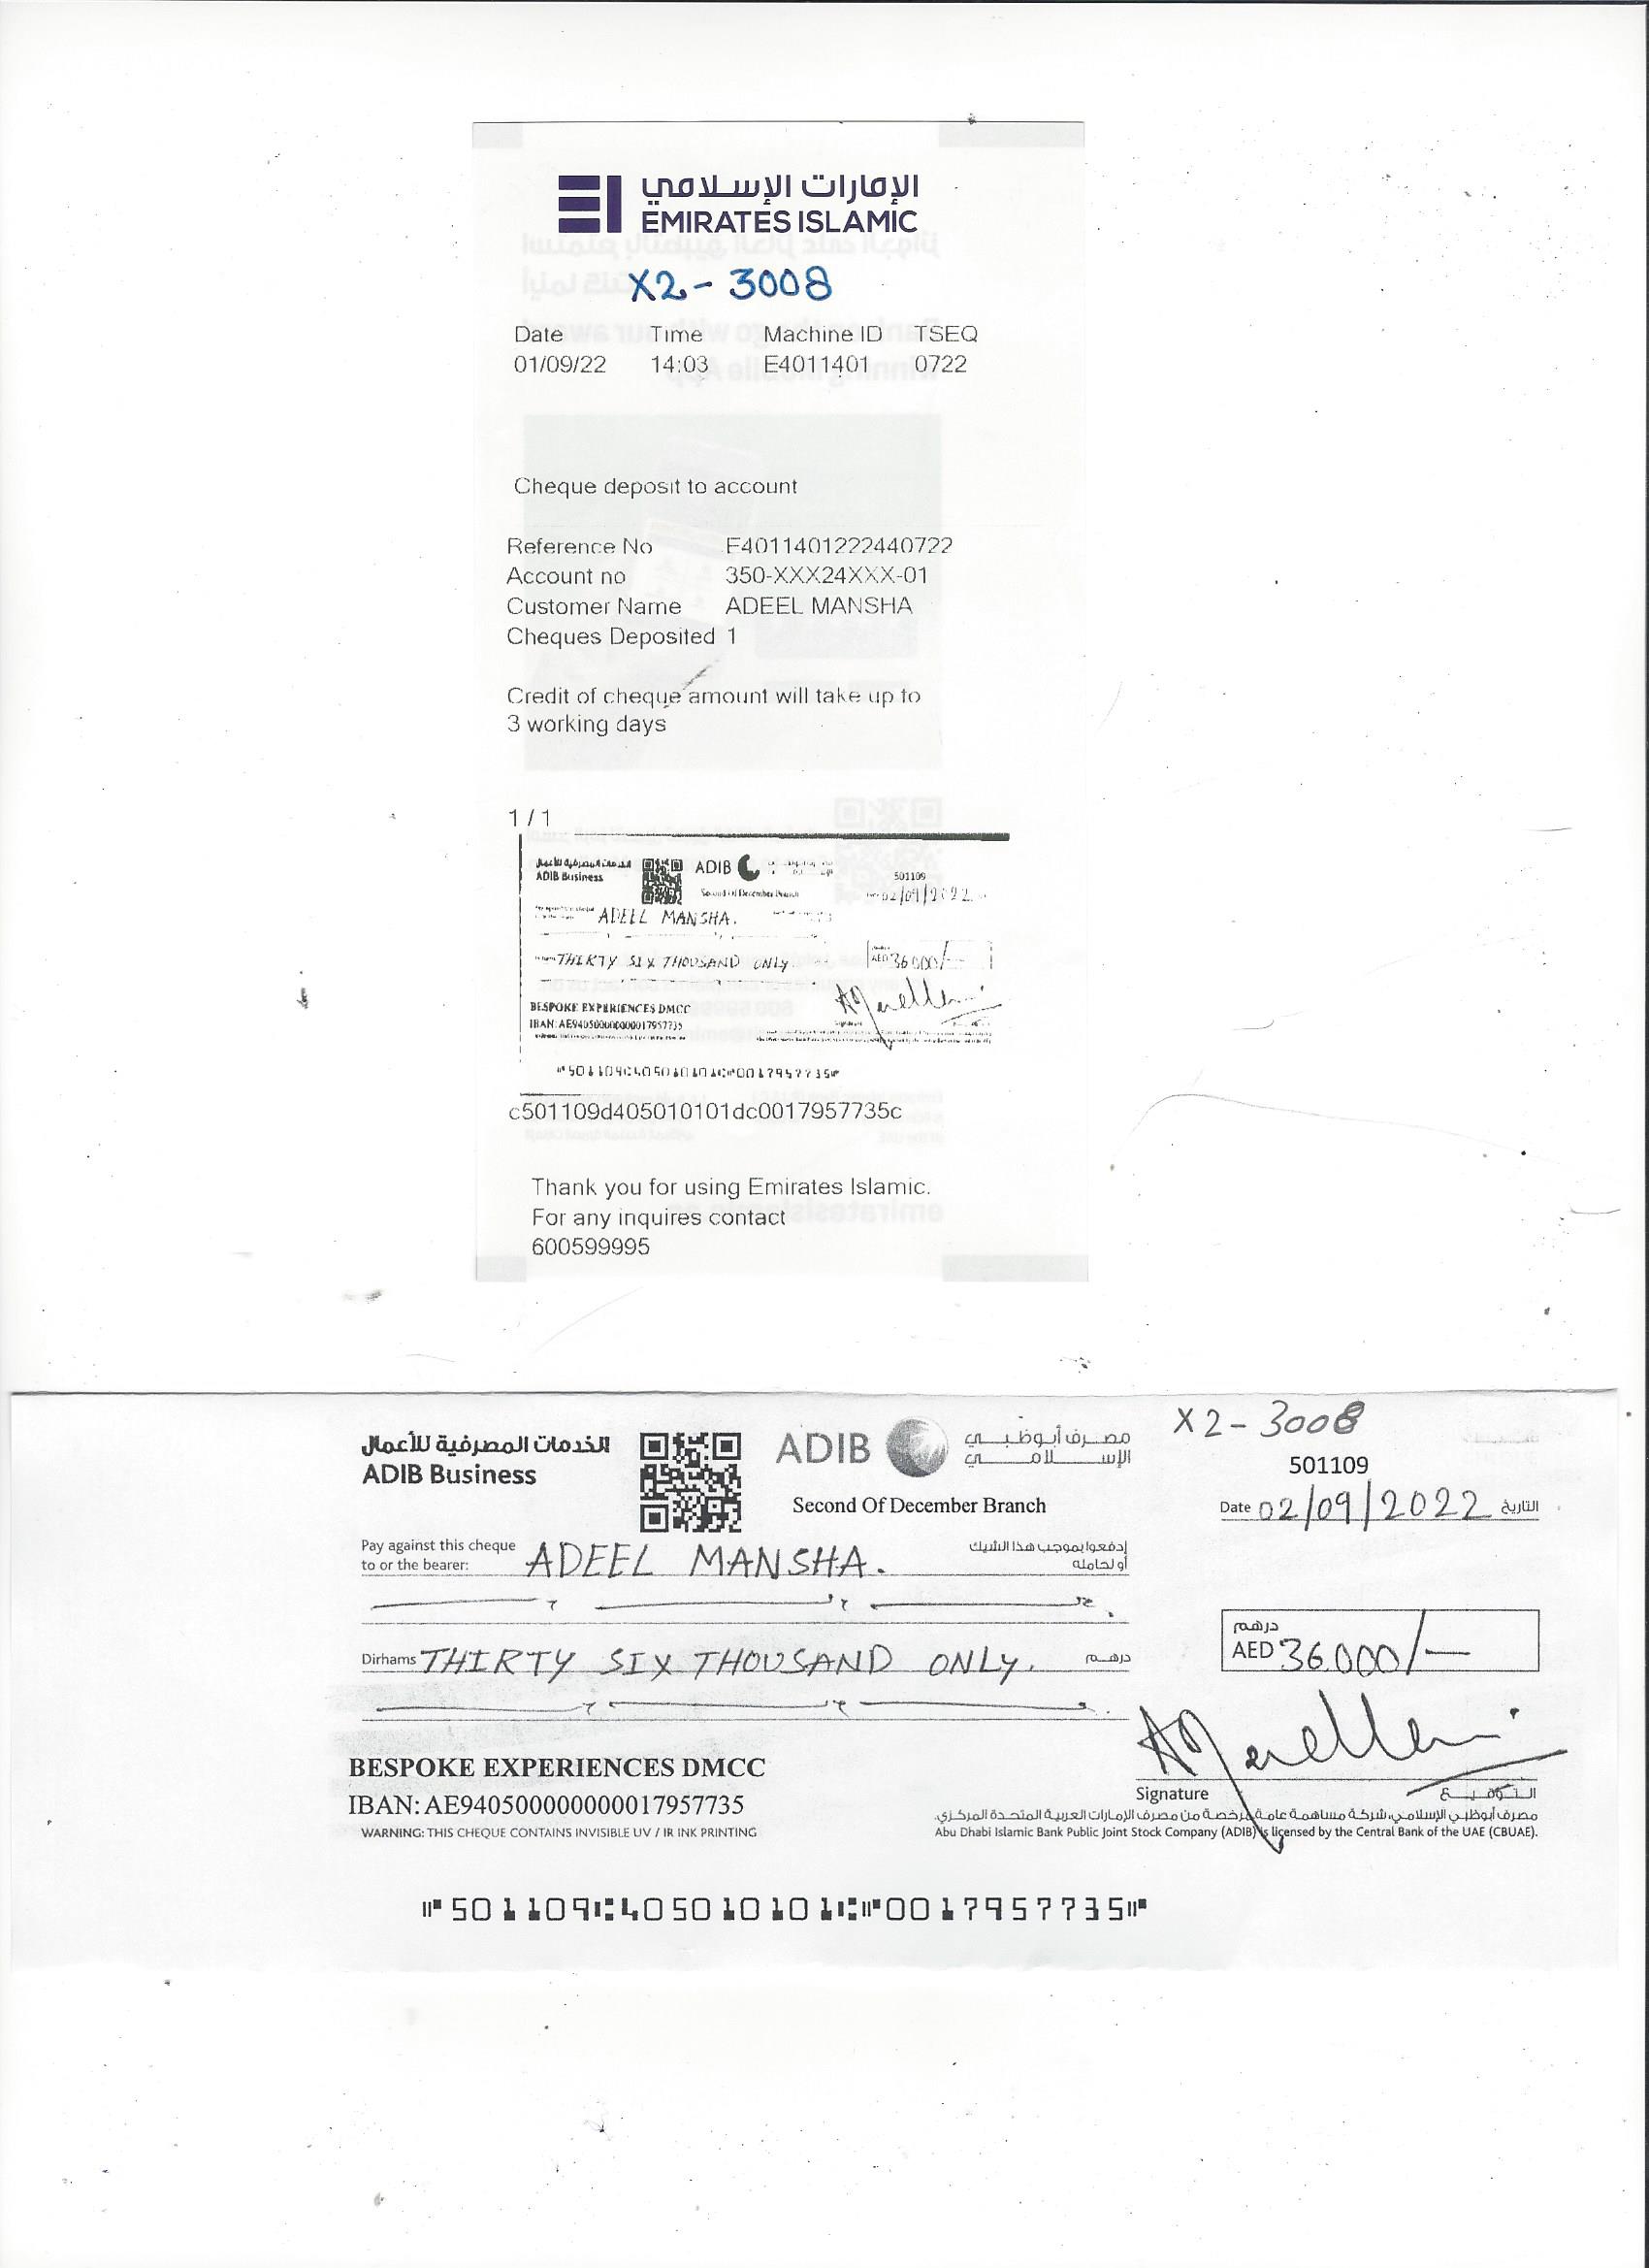 الإمارات الإسلامي
EMIRATES ISLAMIC
X2 - 3008
Date Time Machine ID TSEQ
01/09/22 14:03 E4011401 0722
Cheque deposit to account
Reference No E4011401222440722
Account no 350-XXX24XXX-01
Customer Name ADEEL MANSHA
Cheques Deposited 1
Credit of cheque amount will take up to
3 working days
1 / 1
الخدمات المصرفية للأعمال
ADIB Business
ADIB
Second Of December Branch
501109
02/09/2022
ADEEL MANSHA.
THIRTY SIX THOUSAND ONLY.
AED 36000/-
BESPOKE EXPERIENCES DMCC
IBAN: AE940500000000017957735
501109 405010101 0017957735
c501109d405010101dc0017957735c
Thank you for using Emirates Islamic.
For any inquires contact
600599995
X2 - 3008
الخدمات المصرفية للأعمال
ADIB Business
ADIB
مصرف أبوظبي
الإسلامي
501109
Second Of December Branch
Date 02/09/2022 التاريخ
Pay against this cheque
to or the bearer:
ADEEL MANSHA.
إدفعوا بموجب هذا الشيك
أو لحامله
Dirhams THIRTY SIX THOUSAND ONLY. درهم
درهم
AED 36000/-
BESPOKE EXPERIENCES DMCC
IBAN: AE940500000000017957735
WARNING: THIS CHEQUE CONTAINS INVISIBLE UV / IR INK PRINTING
Signature التوقيع
مصرف أبوظبي الإسلامي، شركة مساهمة عامة مرخصة من مصرف الإمارات العربية المتحدة المركزي.
Abu Dhabi Islamic Bank Public Joint Stock Company (ADIB) is licensed by the Central Bank of the UAE (CBUAE).
501109 405010101 0017957735